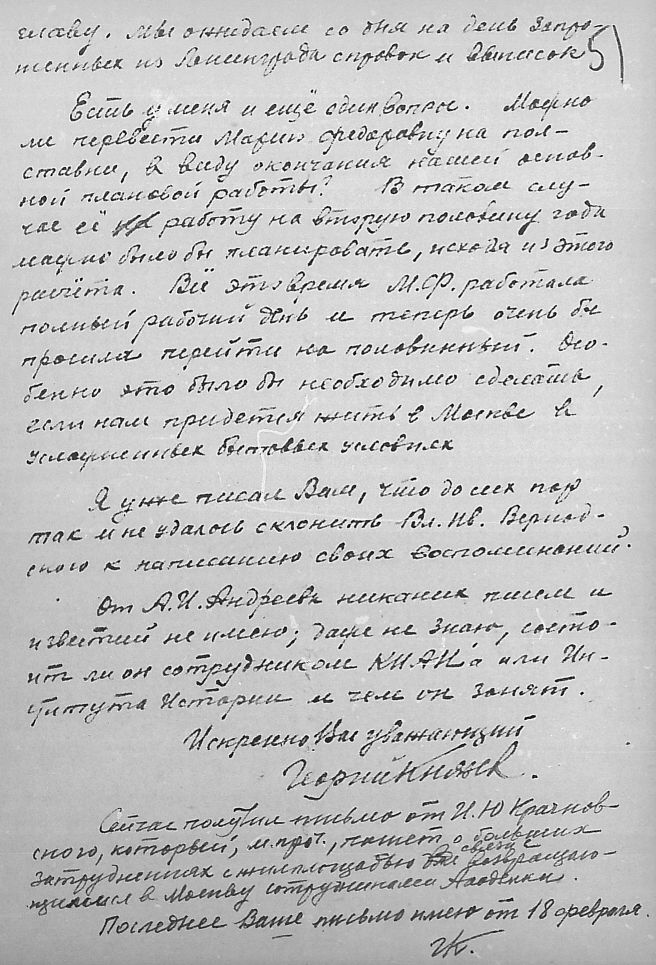 главу. Мы ожидаем со дня на день запро-
шенных из Ленинграда справок и выписок
Есть у меня и ещё один вопрос. Можно
ли перевести Марию Федоровну на пол-
ставки, в виду окончания нашей основ-
ной плановой работы? В таком слу-
чае её работу на вторую половину года
можно было бы планировать, исходя из этого
расчёта. Всё это время М.Ф. работала
полный рабочий день и теперь очень бы
просила перейти на половинный. Осо-
бенно это было бы необходимо сделать,
если нам придется жить в Москве в
усложненных бытовых условиях
Я уже писал Вам, что до сих пор
так и не удалось склонить Вл. Ив. Вернад-
ского к написанию своих воспоминаний.
От А.И. Андреева никаких писем и
известий не имею; даже не знаю, состо-
ит ли он сотрудником КИАН'а или Ин-
ститута Истории и чем он занят.
Искренно Вас уважающий
Георгий Князев.
Сейчас получил письмо от И.Ю Крачков-
ского, который, м. проч., пишет о больших
затрудненьях с жилплощадью в связи с возвращаю-
щимися в Москву сотрудниками Академии.
Последнее Ваше письмо имею от 18 февраля.
ГК.